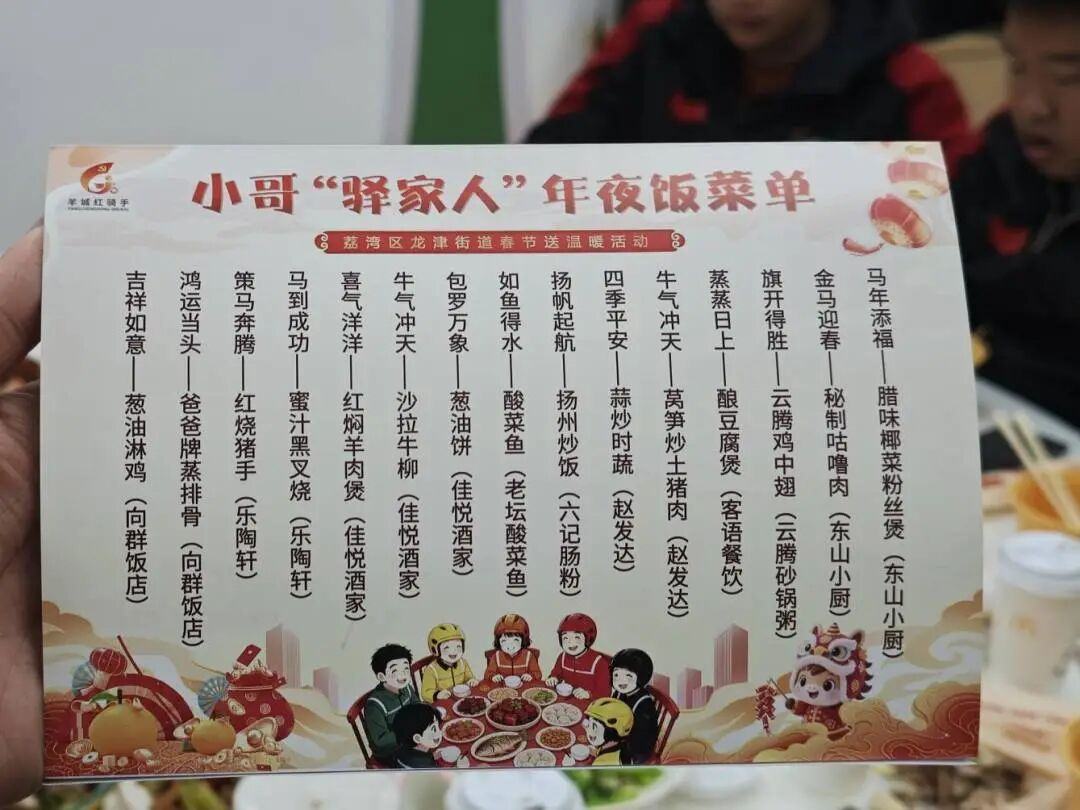 羊城红骑手
小哥“驿家人”年夜饭菜单
荔湾区龙津街道春节送温暖活动
马年添福——腊味椰菜粉丝煲（东山小厨）
金马迎春——秘制咕噜肉（东山小厨）
旗开得胜——云腾鸡中翅（云腾砂锅粥）
蒸蒸日上——酿豆腐煲（客语餐饮）
牛气冲天——莴笋炒土猪肉（赵发达）
四季平安——蒜炒时蔬（赵发达）
扬帆起航——扬州炒饭（六记肠粉）
如鱼得水——酸菜鱼（老坛酸菜鱼）
包罗万象——葱油饼（佳悦酒家）
牛气冲天——沙拉牛柳（佳悦酒家）
喜气洋洋——红焖羊肉煲（佳悦酒家）
马到成功——蜜汁黑叉烧（乐陶轩）
策马奔腾——红烧猪手（乐陶轩）
鸿运当头——爸爸牌蒸排骨（向群饭店）
吉祥如意——葱油淋鸡（向群饭店）